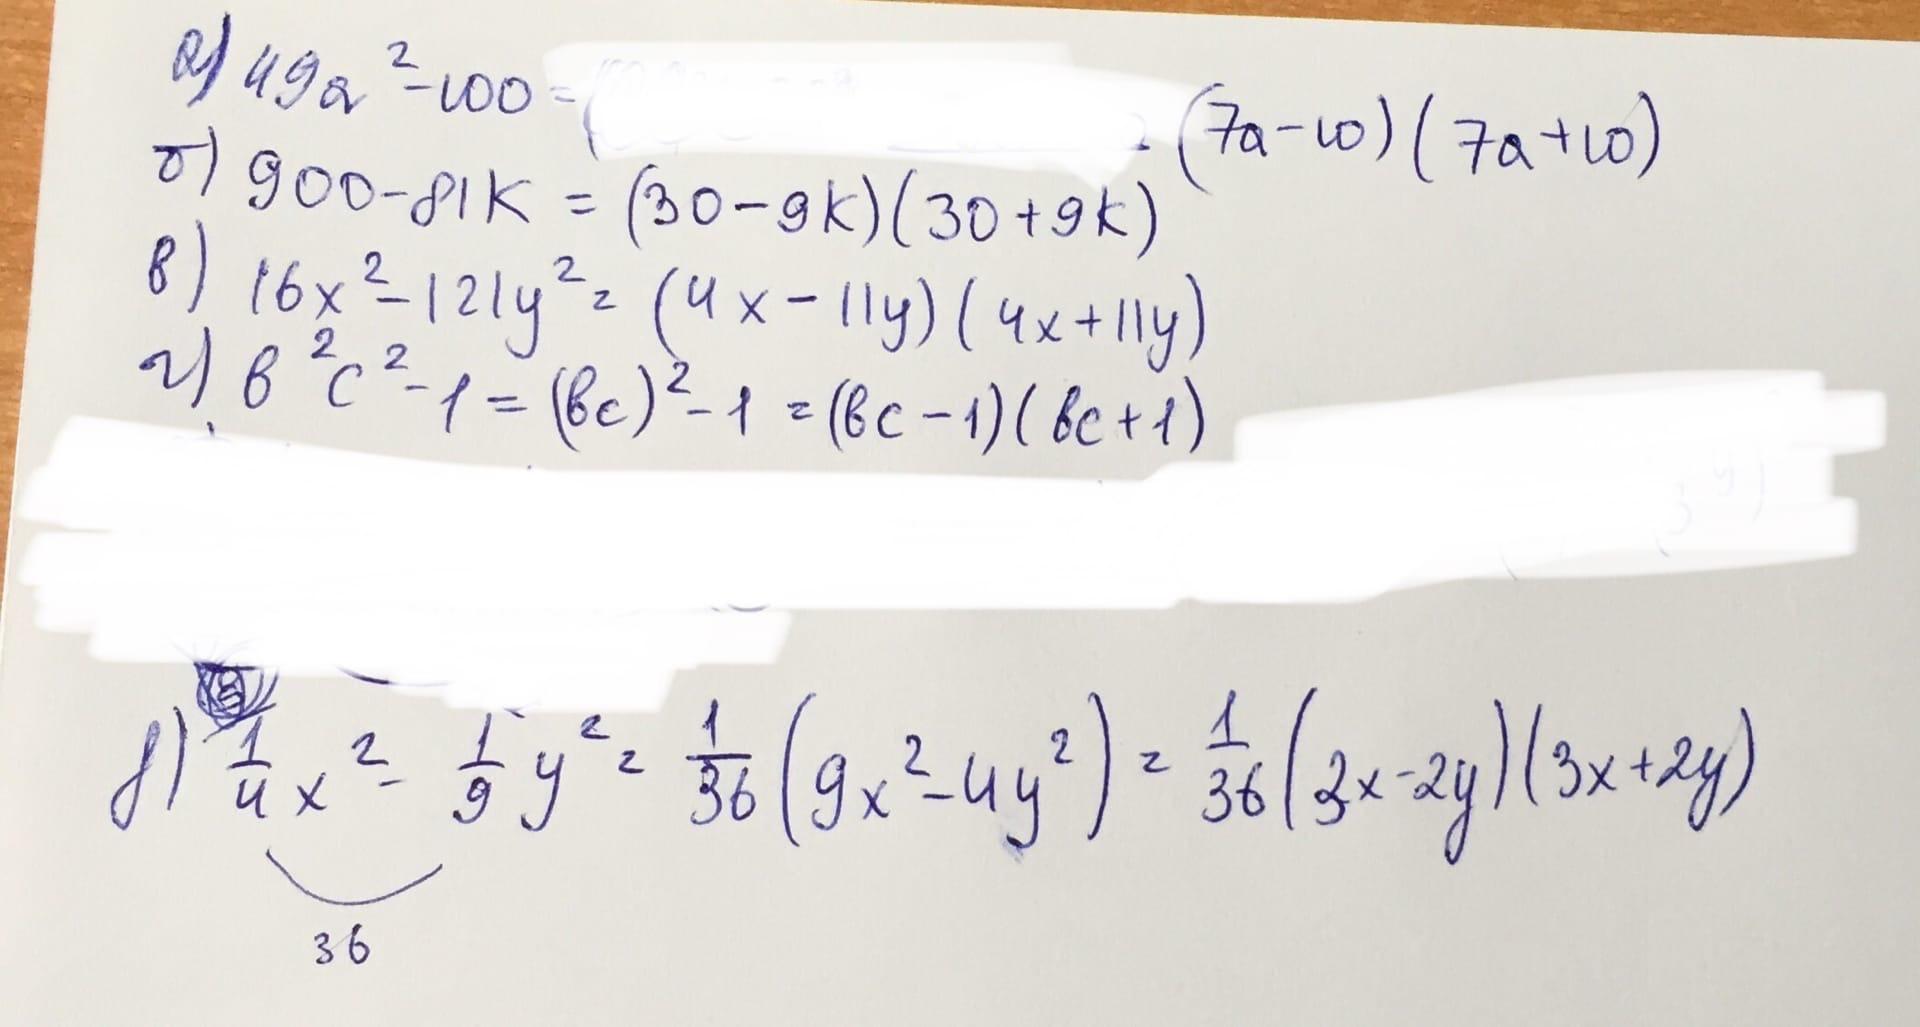 а) 49a² - 100 = (7a - 10)(7a + 10)
б) 900 - 81k = (30 - 9k)(30 + 9k)
в) 16x² - 121y² = (4x - 11y)(4x + 11y)
г) b²c² - 1 = (bc)² - 1 = (bc - 1)(bc + 1)
д) 1/4 x² - 1/9 y² = 1/36 (9x² - 4y²) = 1/36 (3x - 2y)(3x + 2y)
36